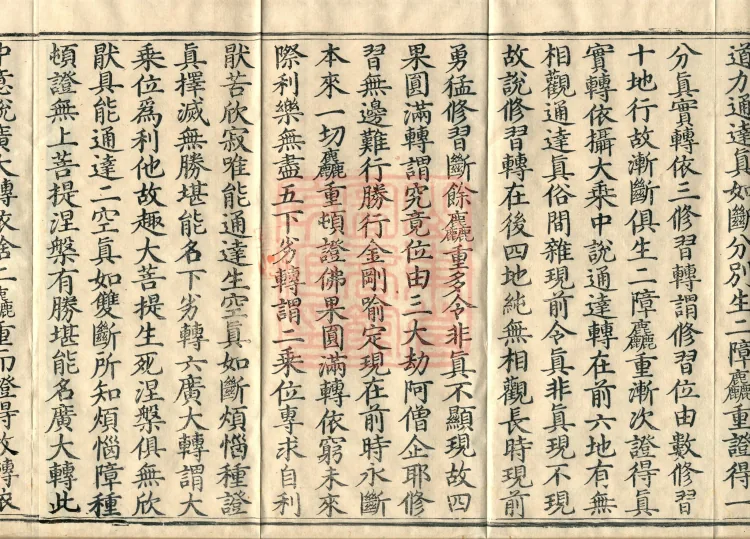 道力通達真如斷分別生二障麤重證得一
分真實轉依三修習轉謂修習位由數修習
十地行故漸斷俱生二障麤重漸次證得真
實轉依攝大乘中說通達轉在前六地有無
相觀通達真俗間雜現前令真非真現不現
故說修習轉在後四地純無相觀長時現前
勇猛修習斷餘麤重多令非真不顯現故四
果圓滿轉謂究竟位由三大劫阿僧企耶修
習無邊難行勝行金剛喻定現在前時永斷
本來一切麤重頓證佛果圓滿轉依窮未來
際利樂無盡五下劣轉謂二乘位專求自利
猒苦欣寂唯能通達生空真如斷煩惱種證
真擇滅無勝堪能名下劣轉六廣大轉謂大
乘位為利他故趣大菩提生死涅槃俱無欣
猒具能通達二空真如雙斷所知煩惱障種
頓證無上菩提涅槃有勝堪能名廣大轉此
中意說廣大轉依捨二麤重而證得故轉依